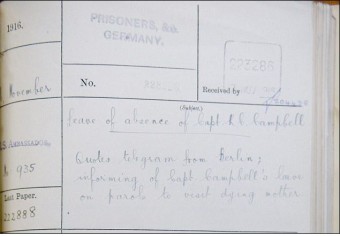 1916.
PRISONERS, &c
GERMANY.
223286
November
No.
Received by
(Subject.)
Leave of absence of Capt R C Campbell
No 935
Quotes telegram from Berlin;
informing of Capt. Campbell's leave
on parole to visit dying mother
Last Paper.
222888